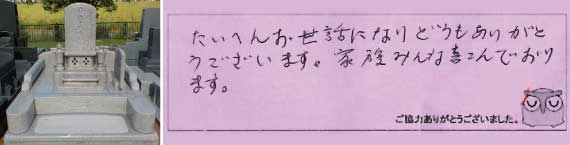 たいへんお世話になりどうもありがと
うございます。家族みんな喜こんでおり
ます。
ご協力ありがとうございました。